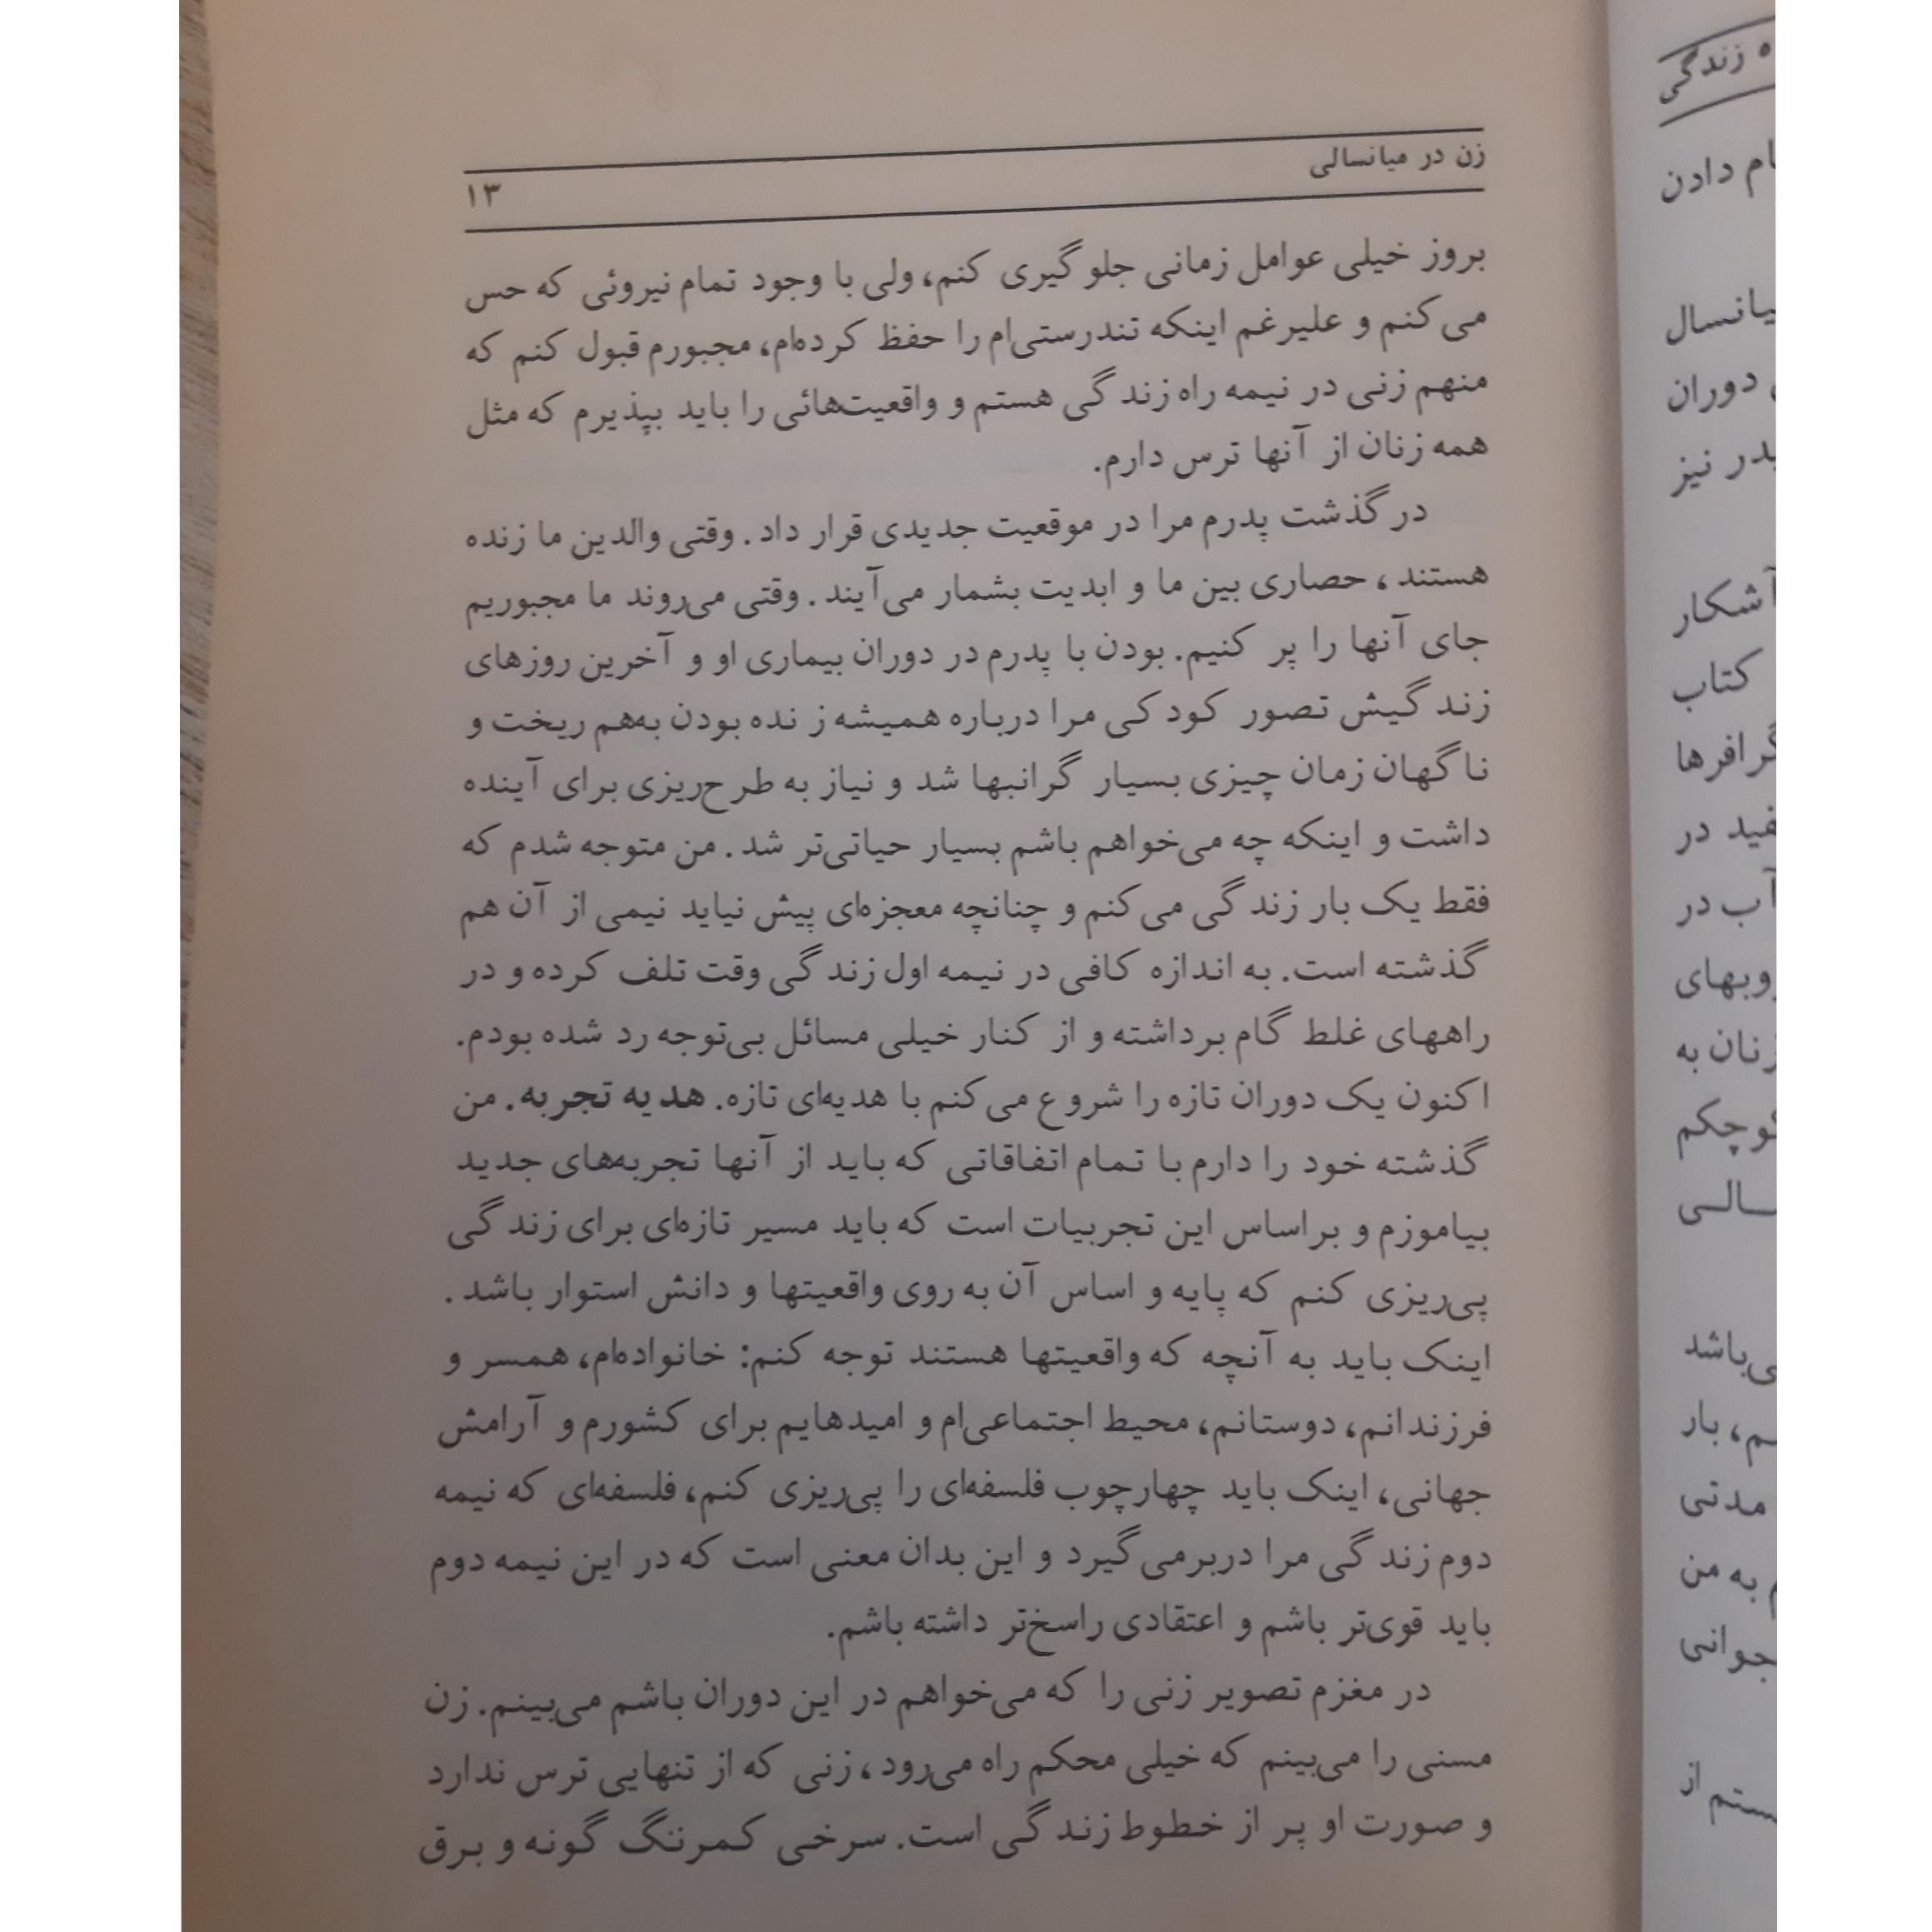 زن در میانسالی
۱۳
بروز خیلی عوامل زمانی جلوگیری کنم، ولی با وجود تمام نیروئی که حس
می‌کنم و علیرغم اینکه تندرستی‌ام را حفظ کرده‌ام، مجبورم قبول کنم که
منهم زنی در نیمه راه زندگی هستم و واقعیت‌هائی را باید بپذیرم که مثل
همه زنان از آنها ترس دارم.
درگذشت پدرم مرا در موقعیت جدیدی قرار داد. وقتی والدین ما زنده
هستند، حصاری بین ما و ابدیت بشمار می‌آیند. وقتی می‌روند ما مجبوریم
جای آنها را پر کنیم. بودن با پدرم در دوران بیماری او و آخرین روزهای
زندگیش تصور کودکی مرا درباره همیشه زنده بودن به‌هم ریخت و
ناگهان زمان چیزی بسیار گرانبها شد و نیاز به طرح‌ریزی برای آینده
داشت و اینکه چه می‌خواهم باشم بسیار حیاتی‌تر شد. من متوجه شدم که
فقط یک بار زندگی می‌کنم و چنانچه معجزه‌ای پیش نیاید نیمی از آن هم
گذشته است. به اندازه کافی در نیمه اول زندگی وقت تلف کرده و در
راههای غلط گام برداشته و از کنار خیلی مسائل بی‌توجه رد شده بودم.
اکنون یک دوران تازه را شروع می‌کنم با هدیه‌ای تازه. هدیه تجربه. من
گذشته خود را دارم با تمام اتفاقاتی که باید از آنها تجربه‌های جدید
بیاموزم و براساس این تجربیات است که باید مسیر تازه‌ای برای زندگی
پی‌ریزی کنم که پایه و اساس آن به روی واقعیتها و دانش استوار باشد.
اینک باید به آنچه که واقعیتها هستند توجه کنم: خانواده‌ام، همسر و
فرزندانم، دوستانم، محیط اجتماعی‌ام و امیدهایم برای کشورم و آرامش
جهانی، اینک باید چهارچوب فلسفه‌ای را پی‌ریزی کنم، فلسفه‌ای که نیمه
دوم زندگی مرا دربرمی‌گیرد و این بدان معنی است که در این نیمه دوم
باید قوی‌تر باشم و اعتقادی راسخ‌تر داشته باشم.
در مغزم تصویر زنی را که می‌خواهم در این دوران باشم می‌بینم. زن
مسنی را می‌بینم که خیلی محکم راه می‌رود، زنی که از تنهایی ترس ندارد
و صورت او پر از خطوط زندگی است. سرخی کمرنگ گونه و برق
زندگی
دادن
دوران
نیز
آشکار
کتاب
در
آب در
زنان به
می‌باشد
بار
مدتی
به من
از